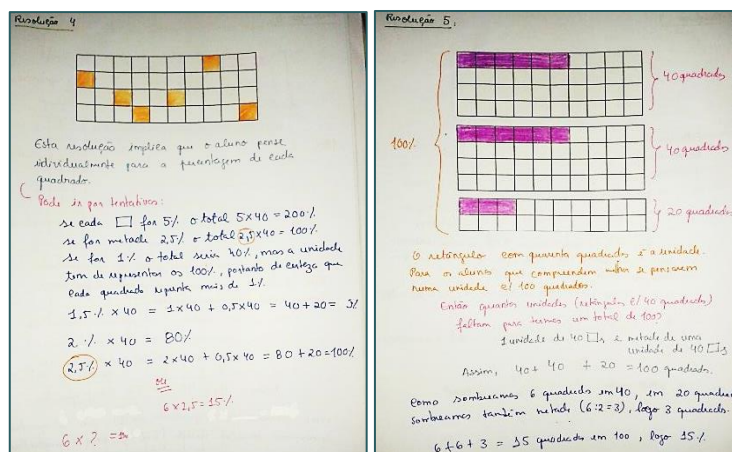 Resolução 4
Esta resolução implica que o aluno pense
individualmente para a percentagem de cada
quadrado.
Pode ir por tentativas:
se cada □ for 5% o total 5x40 = 200%
se for metade 2,5% o total 2,5x40 = 100%
se for 1% o total seria 40%, mas a unidade
tem de representar os 100%, portanto de certeza que
cada quadrado repunta mais de 1%.
1,5% x 40 = 1x40 + 0,5x40 = 40+20 =
2% x 40 = 80%
2,5% x 40 = 2x40 + 0,5x40 = 80+20=100%
ou
6x2,5=15%
6 x ? =
Resolução 5.
100%
40 quadrados
40 quadrados
20 quadrados
O retângulo com quarenta quadrados é a unidade.
Para os alunos que compreendem melhor se pensarem
numa unidade c/ 100 quadrados.
Então quantas unidades (retângulos c/ 40 quadrados)
faltam para termos um total de 100?
1 unidade de 40 □s e metade de uma
unidade de 40 □s
Assim, 40 + 40 + 20 = 100 quadrados.
Como sombreamos 6 quadrados em 40, em 20 quadra
sombreamos também metade (6:2=3), logo 3 quadrados.
6+6+3 = 15 quadrados em 100, logo 15%.